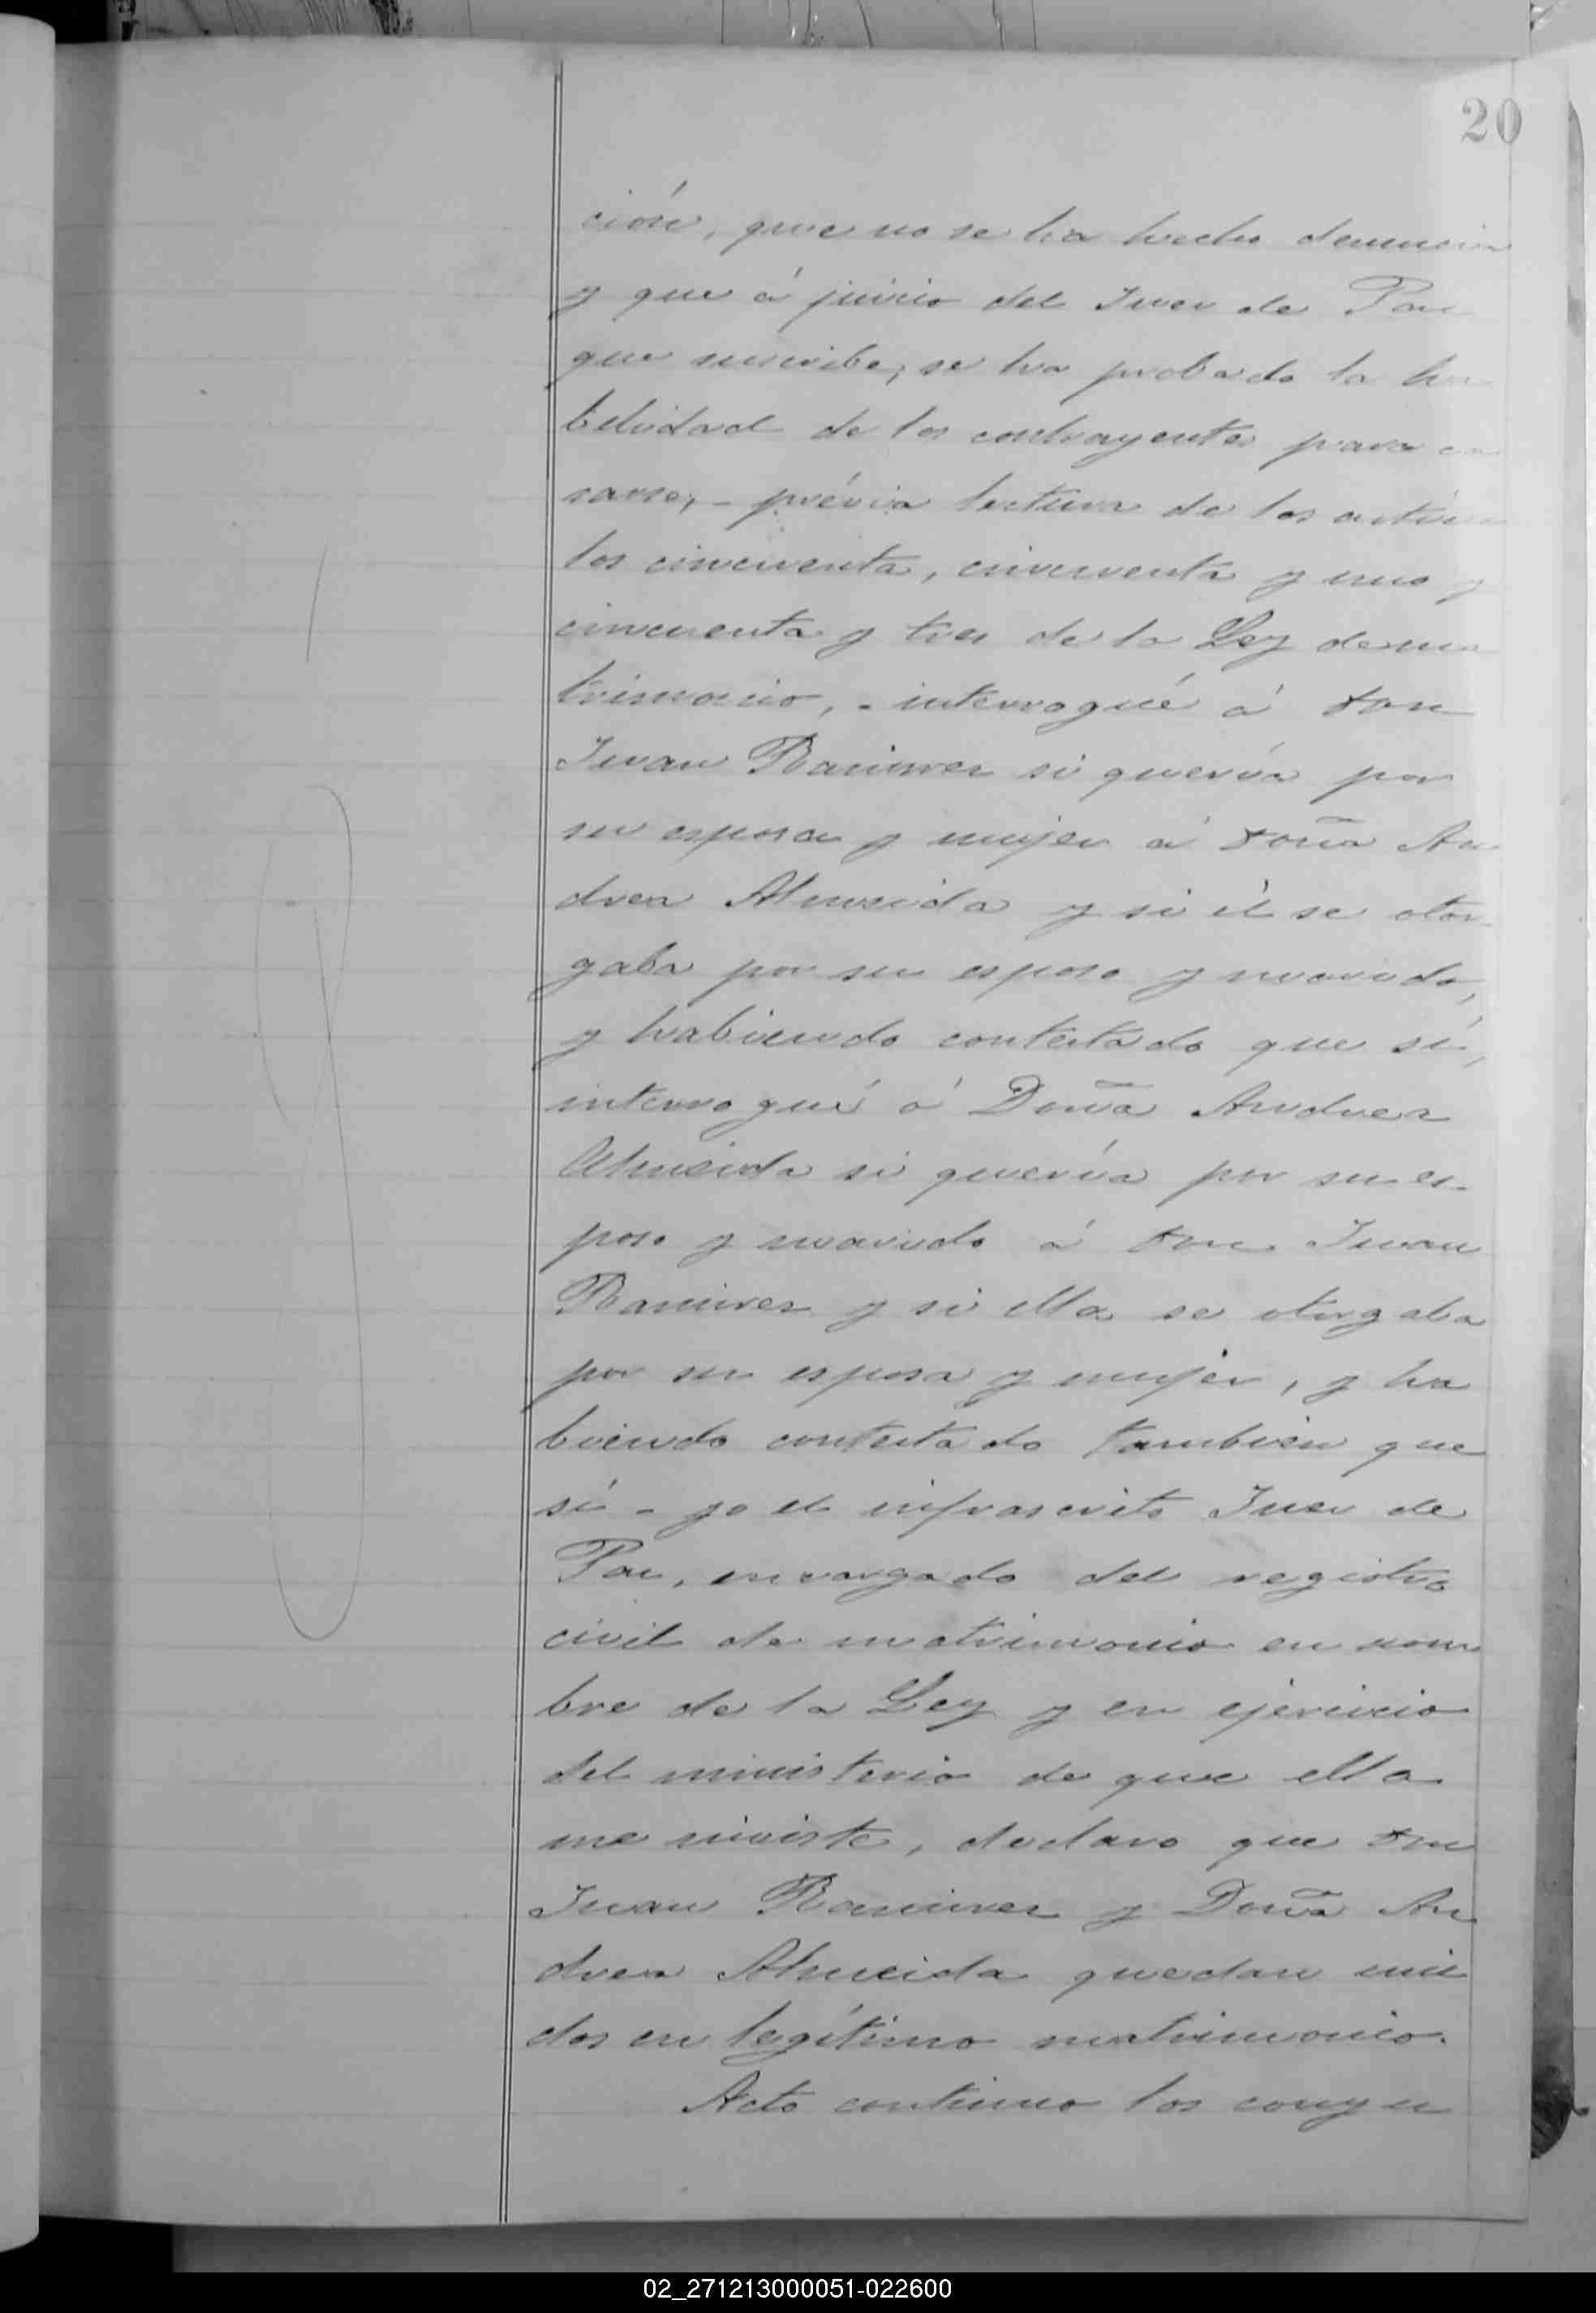 20
ción, que no se ha hecho denuncia
y que á juicio del Juez de Paz
que suscribe, se ha probado la ha
bilidad de los contrayentes para ca
sarse, - prévia lectura de los artícu
los cincuenta, cincuenta y uno y
cincuenta y tres de la Ley de ma
trimonio, - interrogué á don
Juan Ramirez si quería por
su esposa y mujer á doña An
drea Almeida y si él se otor
gaba por su esposo y marido,
y habiendo contestado que sí,
interrogué á Doña Andrea
Almeida si quería por su es-
poso y marido á don Juan
Ramirez y si ella se otorgaba
por su esposa y mujer, y ha
biendo contestado tambien que
sí - yo el infrascrito Juez de
Paz, encargado del registro
civil de matrimonio en nom
bre de la Ley y en ejercicio
del ministerio de que ella
me inviste, declaro que don
Juan Ramirez y Doña An
drea Almeida quedan uni
dos en legítimo matrimonio.
Acto continuo los conyu
02_271213000051-022600